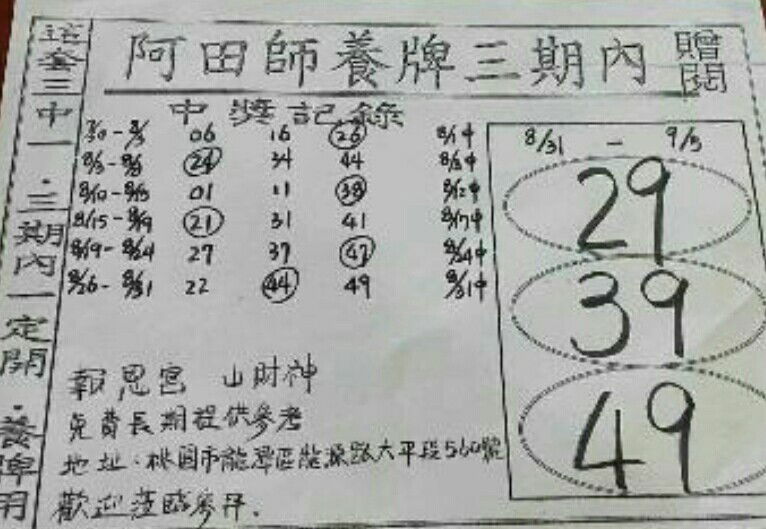 這套三中一.三期內一定開.養牌用
阿田師養牌三期內
贈閱
中獎記錄
7/30-8/3 06 16 26 8/1中
8/3-8/8 24 34 44 8/8中
8/10-8/15 01 11 38 8/12中
8/15-8/19 21 31 41 8/17中
8/19-8/24 27 37 47 8/24中
8/26-8/31 22 44 49 8/31中
8/31-9/5
29
39
49
報恩宮 山財神
免費長期提供參考
地址.桃園市龍潭區龍源路大平段560號
歡迎蒞臨參拜.